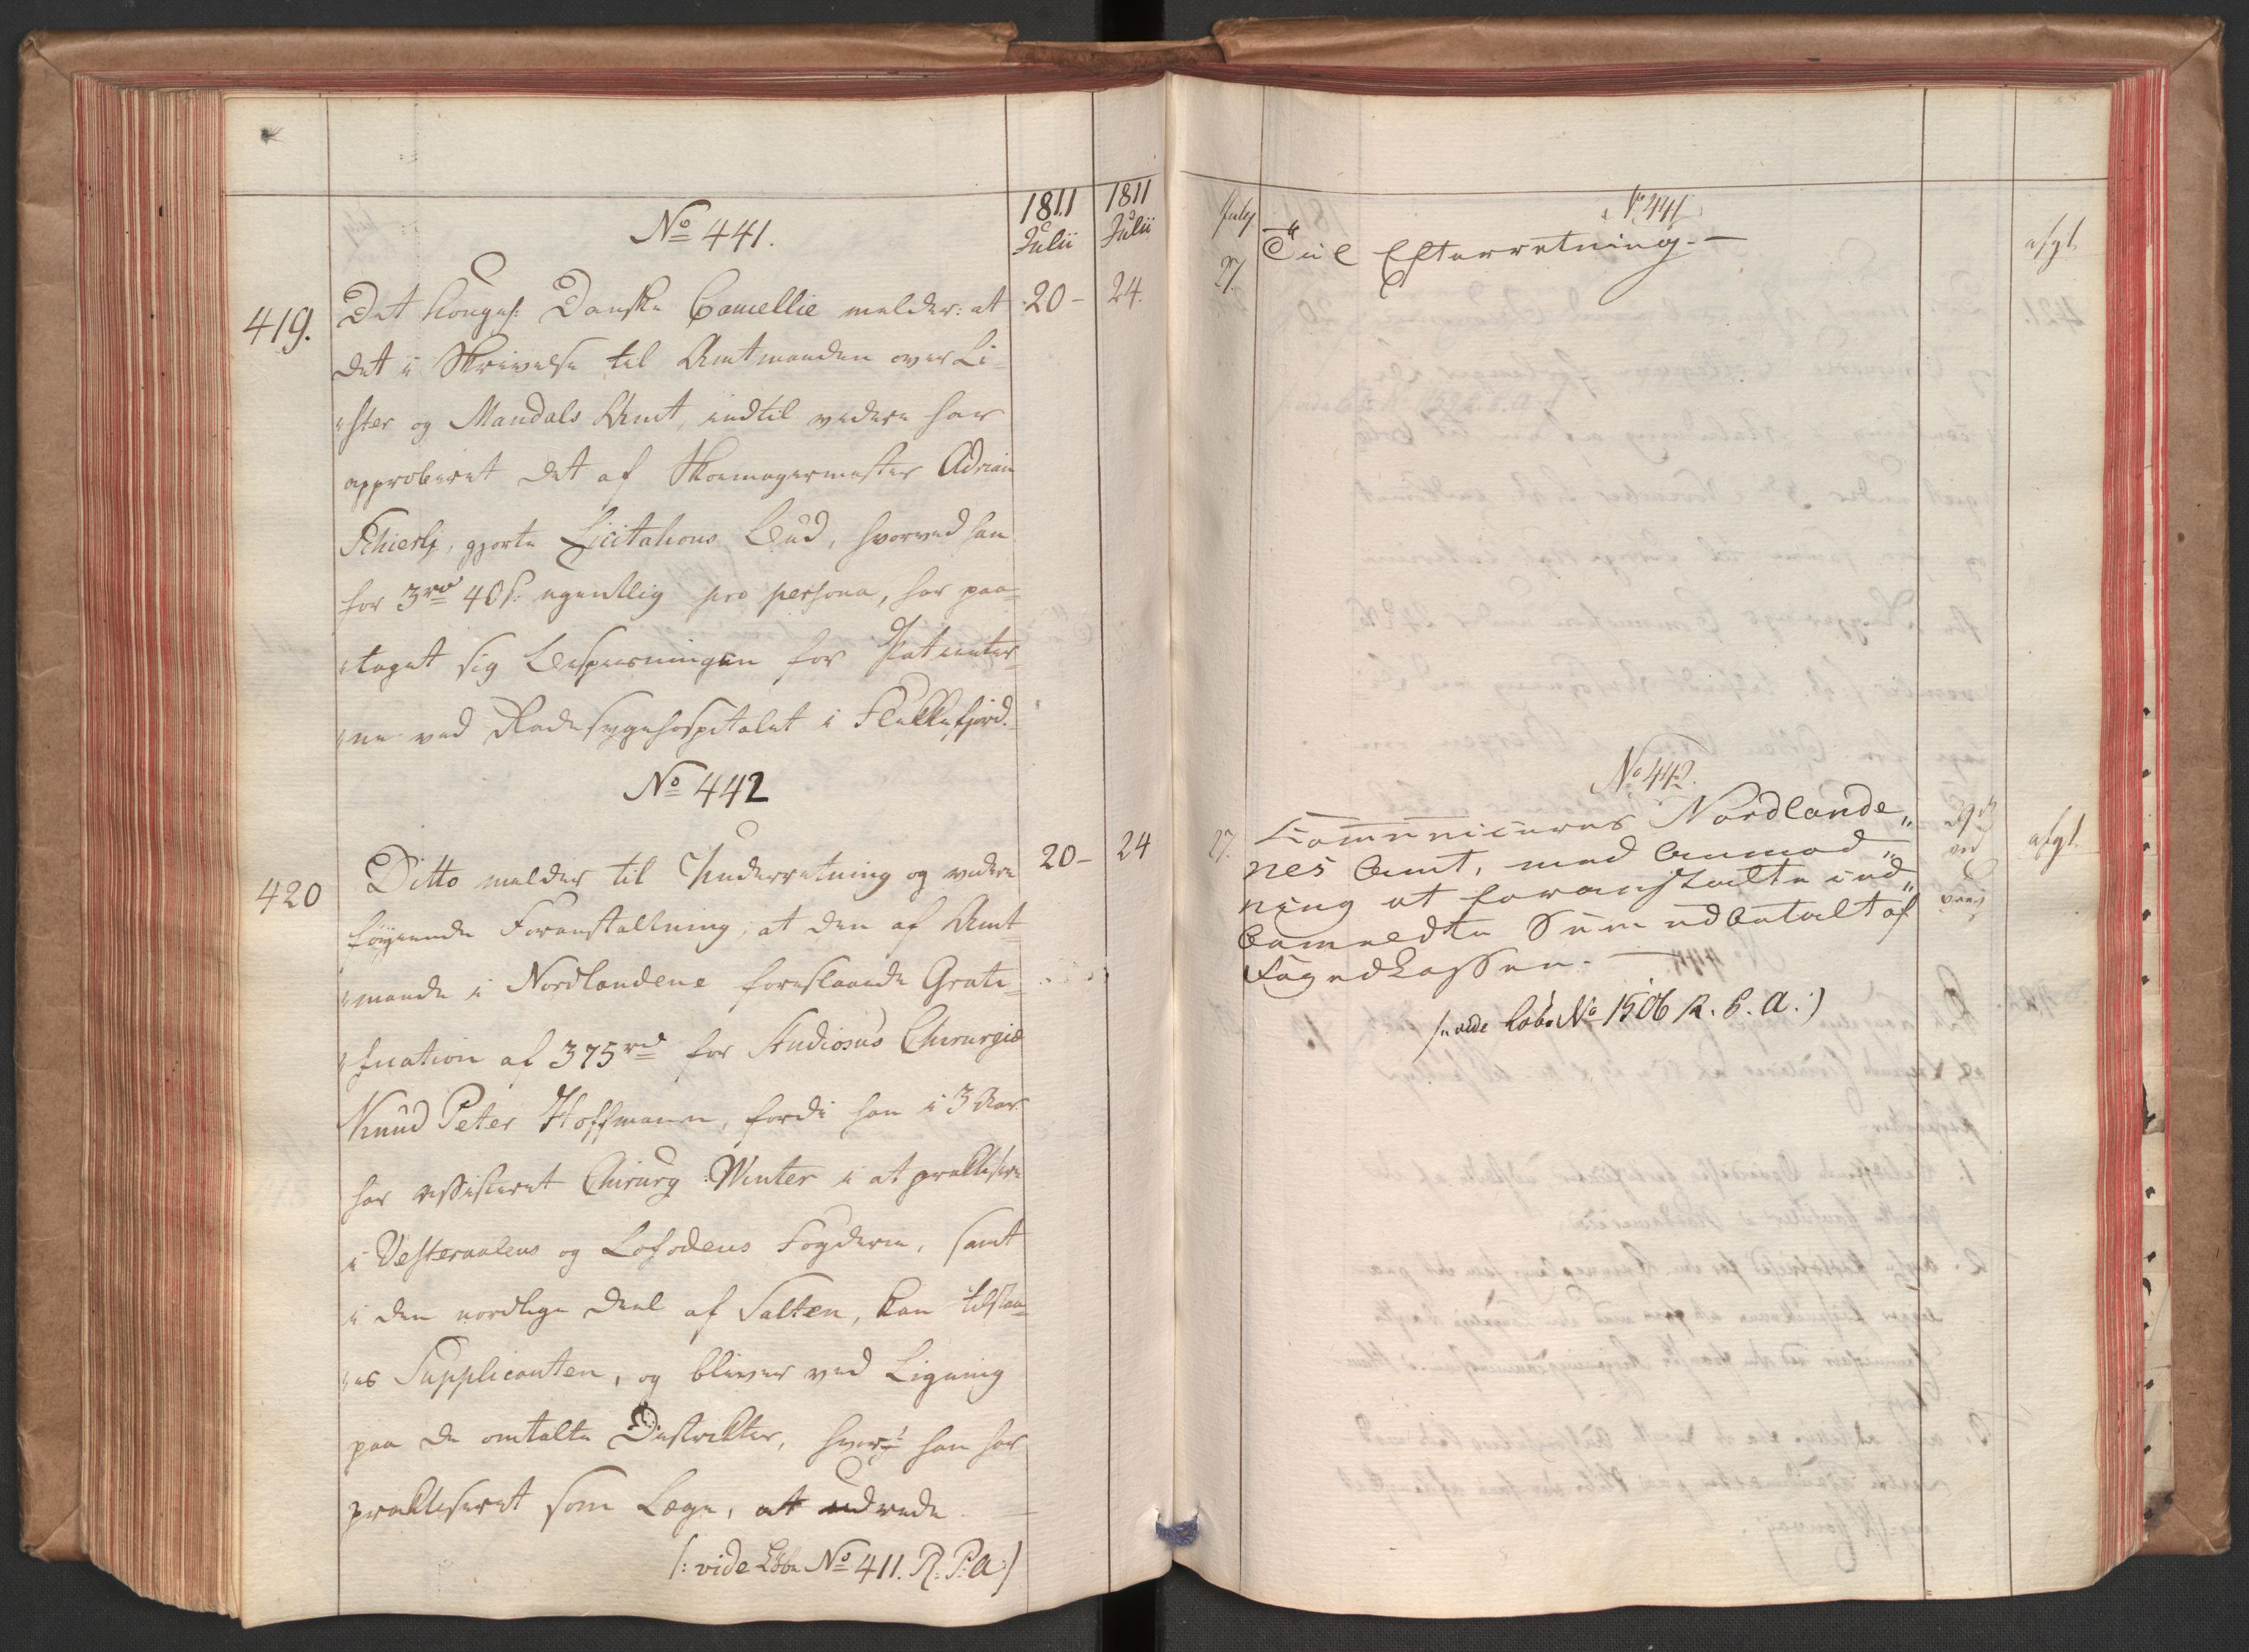 1811 Julii
1811 Julii
No 441.
419. Det Kongel: Danske Cancellie melder: at 20 - 24.
det i Skrivelse til Amtmanden over Li-
ster og Mandals Amt, indtil videre har
approberet det af Skomagermester Adrian
gjorte Licitations Bud, hvorved han
for 3 rd 40 s: ugentlig pro persona, har paa-
taget sig Bespisningen for Patienter-
ne ved Radesygehospitalet i Flekkefjord.
No 442
420 Ditto melder til Underretning og videre 20 - 24
føyende Foranstaltning, at den af Amt-
mande i Nordlandene foreslaaede Grati-
fication af 375 rd for Studiosus Chirurgiæ
Knud Peter Hoffmann, fordi han i 3 Aar
har assisteret Chirurg Winter i at praktisere
i Vesteraalens og Lofodens Fogderie, samt
i den nordlige Deel af Salten, kan tilstaa-
es Supplicanten, og bliver ved Ligning
paa de omtalte Districkter, hvor han har
praktiseret som Læge, at udrede
/: vide Løbe No 411. R: P: A :/
July
No 441
27. Til Efterretning. - afgl.
No 442.
27. Communiceres Nordlande- afgl.
nes Amt, med Anmod-
ning at foranstalte ind-
bemeldte Sum udbetalt af
Fogedkassen. -
/: vide Løbe No 1506 R. P. A. :/